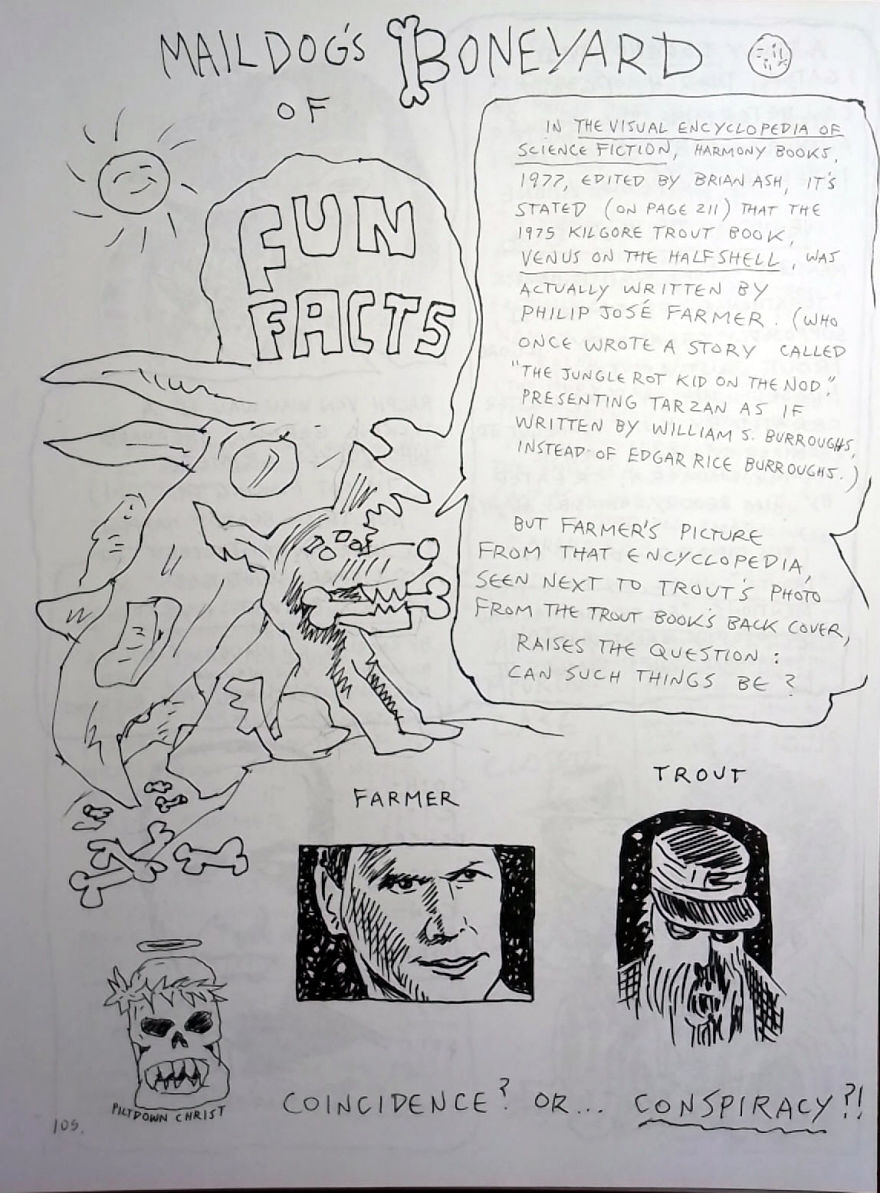 MAILDOG'S BONEYARD
OF
FUN
FACTS
IN THE VISUAL ENCYCLOPEDIA OF
SCIENCE FICTION, HARMONY BOOKS,
1977, EDITED BY BRIAN ASH, IT'S
STATED (ON PAGE 211) THAT THE
1975 KILGORE TROUT BOOK,
VENUS ON THE HALFSHELL, WAS
ACTUALLY WRITTEN BY
PHILIP JOSÉ FARMER. (WHO
ONCE WROTE A STORY CALLED
"THE JUNGLE ROT KID ON THE NOD"
PRESENTING TARZAN AS IF
WRITTEN BY WILLIAM S. BURROUGHS,
INSTEAD OF EDGAR RICE BURROUGHS.)
BUT FARMER'S PICTURE
FROM THAT ENCYCLOPEDIA,
SEEN NEXT TO TROUT'S PHOTO
FROM THE TROUT BOOK'S BACK COVER,
RAISES THE QUESTION:
CAN SUCH THINGS BE?
FARMER
TROUT
PILTDOWN CHRIST
COINCIDENCE? OR... CONSPIRACY?!
105.